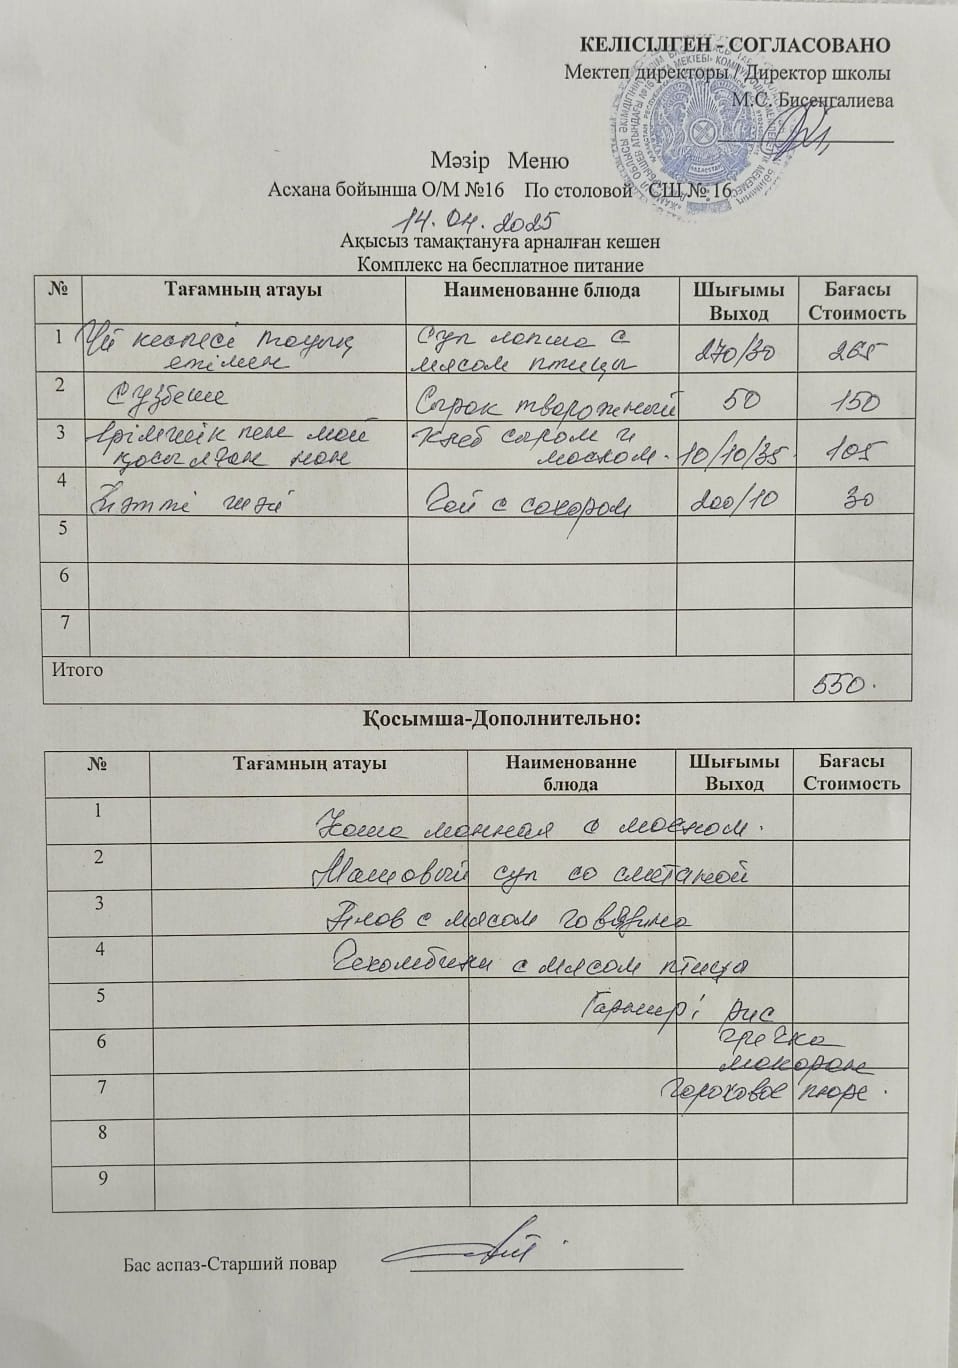 КЕЛІСІЛГЕН - СОГЛАСОВАНО
Мектеп директоры / Директор школы
М.С. Бисенгалиева
Мәзір Меню
Асхана бойынша О/М №16 По столовой СШ № 16
14.04.2025
Ақысыз тамақтануға арналған кешен
Комплекс на бесплатное питание
№ Тағамның атауы Наименованне блюда Шығымы Выход Бағасы Стоимость
1 Үй кеспесі тауық етімен Суп лапша с мясом птицы 270/30 265
2 Сүзбеше Сырок творожный 50 150
3 Ірімшік пен май қосылған нан Хлеб сыром и маслом. 10/10/35. 105
4 Тәтті шәй Чай с сахаром 200/10 30
5
6
7
Итого 550.
Қосымша-Дополнительно:
№ Тағамның атауы Наименованне блюда Шығымы Выход Бағасы Стоимость
1 Каша манная с маслом.
2 Машовый суп со сметаной
3 Плов с мясом говядина
4 с мясом птица
5 Гарнир: рис
6 гречка
макарон
7 Гороховое пюре.
8
9
Бас аспаз-Старший повар